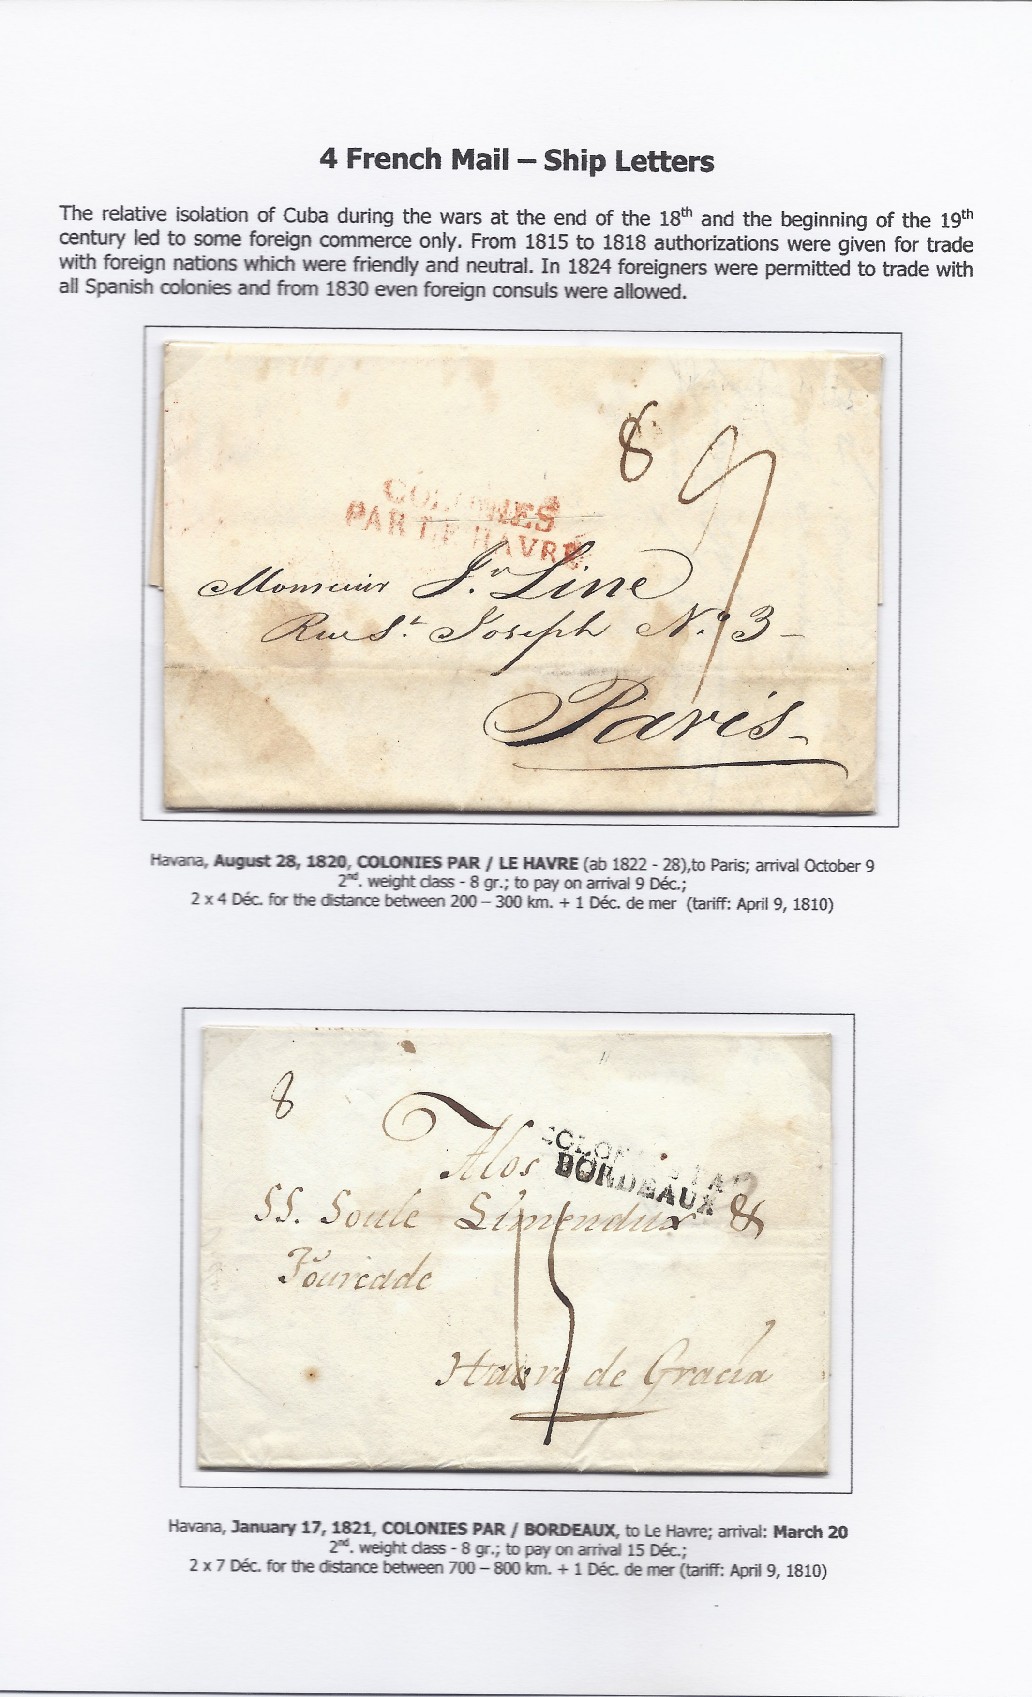 4 French Mail – Ship Letters
The relative isolation of Cuba during the wars at the end of the 18th and the beginning of the 19th
century led to some foreign commerce only. From 1815 to 1818 authorizations were given for trade
with foreign nations which were friendly and neutral. In 1824 foreigners were permitted to trade with
all Spanish colonies and from 1830 even foreign consuls were allowed.
8 9
COLONIES
PAR LE HAVRE
Monsieur Jn. Line
Rue St. Joseph No. 3 -
Paris
Havana, August 28, 1820, COLONIES PAR / LE HAVRE (ab 1822 - 28),to Paris; arrival October 9
2nd. weight class - 8 gr.; to pay on arrival 9 Déc.;
2 x 4 Déc. for the distance between 200 – 300 km. + 1 Déc. de mer (tariff: April 9, 1810)
8
COLONIES PAR
BORDEAUX
Alos
SS. Soulé
Havre de Gracia
15
Havana, January 17, 1821, COLONIES PAR / BORDEAUX, to Le Havre; arrival: March 20
2nd. weight class - 8 gr.; to pay on arrival 15 Déc.;
2 x 7 Déc. for the distance between 700 – 800 km. + 1 Déc. de mer (tariff: April 9, 1810)